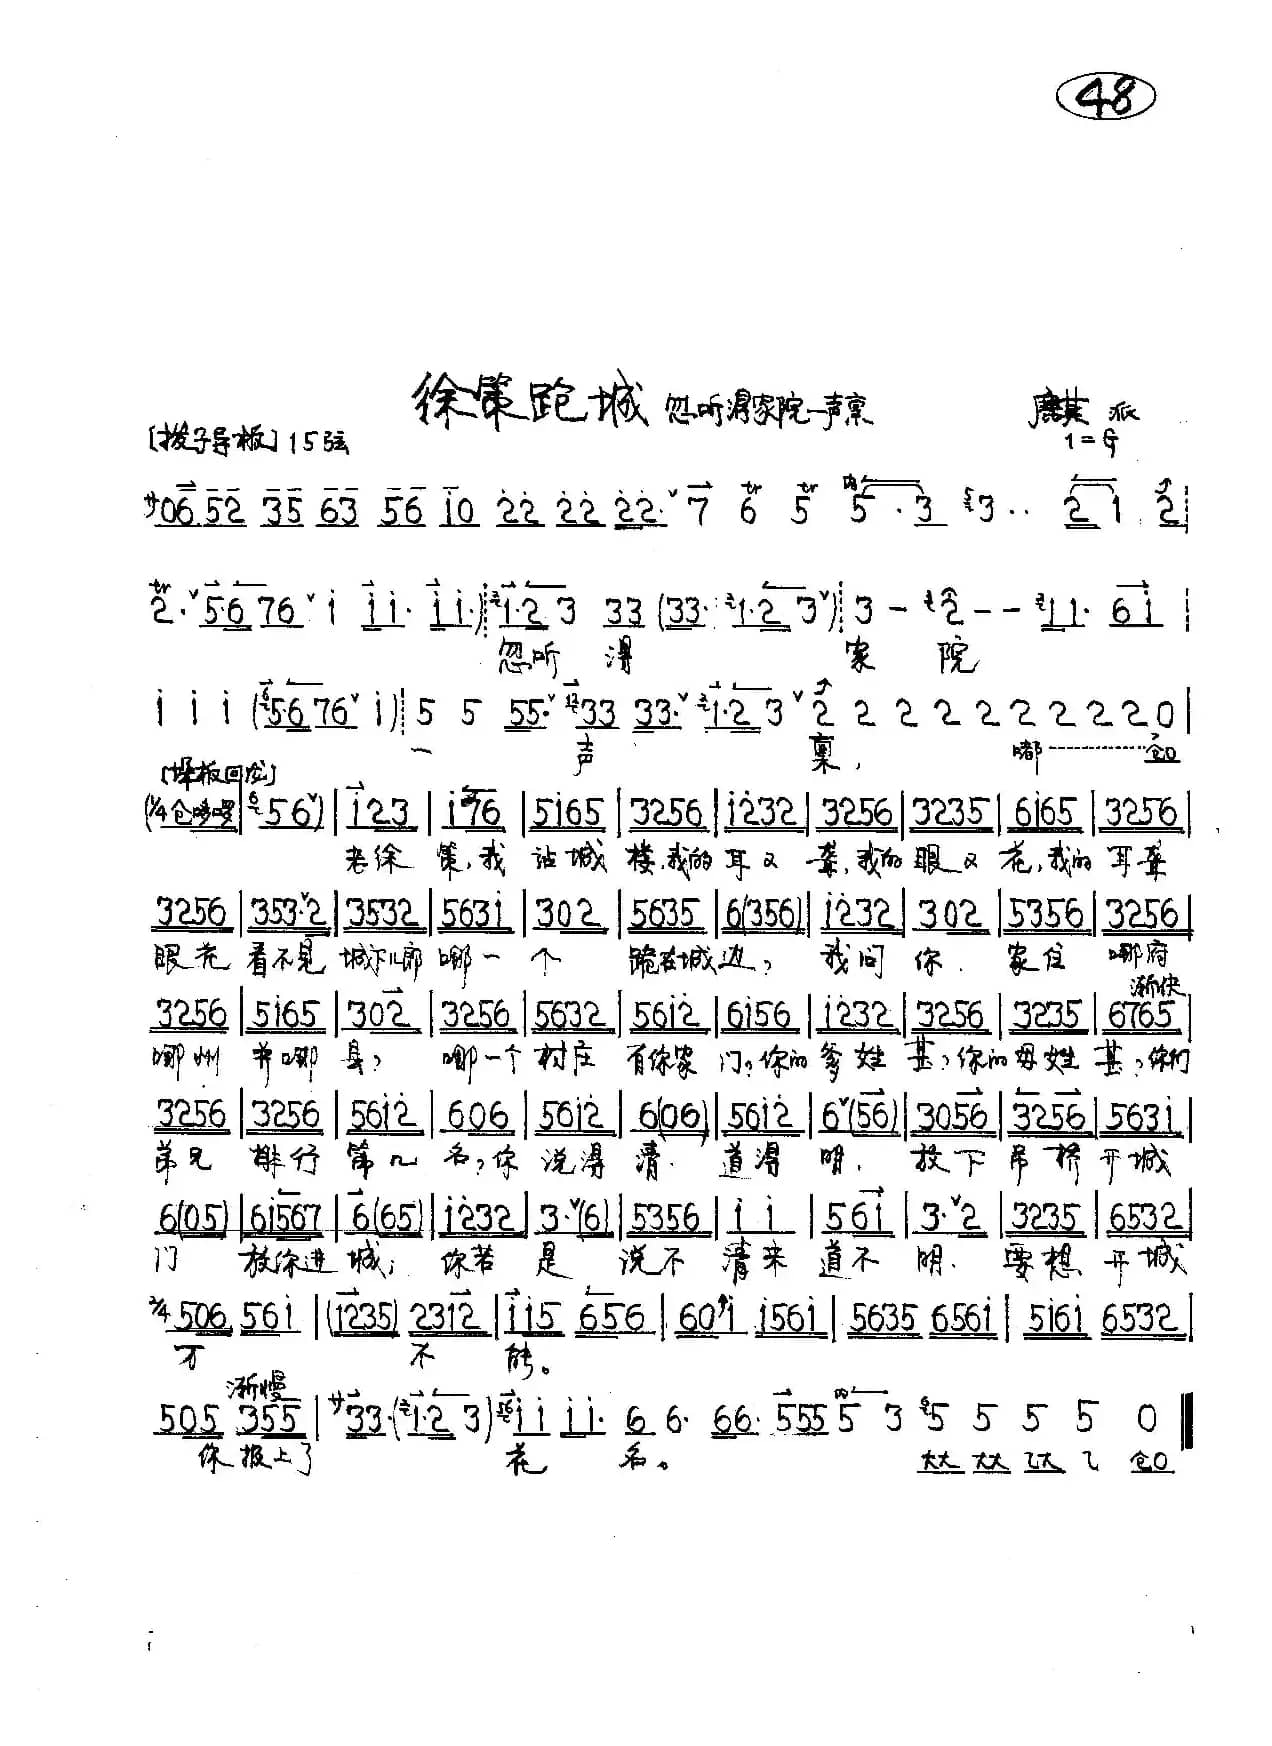 48
徐策跑城 忽听得家院一声禀 麒派
[拨子导板] 15弦 1=G
廿06 52 35 63 56 i0 22 22 22. ˇ 7 6 5 5.3 3.. 21 2
2. ˇ 5.6 76 ˇ i ii. ii.) 1.2 3 33 (33. 1.2 3ˇ) 3 - 2 - - 11. 6i
忽听 得 家 院
i i i (5676ˇ i) 5 5 55.ˇ 33 33.ˇ 1.2 3 ˇ 2 2 2 2 2 2 2 2 2 0 |
一 声 禀, 嘟……… 仓0
[垛板回龙]
(1/4 仓哆啰 | 56ˇ) | i23 | i76 | 5i65 | 3256 | i232 | 3256 | 3235 | 6i65 | 3256 |
老徐 策,我 站城 楼,我的 耳又 聋,我的 眼又 花,我的 耳聋
3256 | 353.ˇ2 | 3532 | 563i | 302 | 5635 | 6(356) | i232 | 302 | 5356 | 3256 |
眼花 看不见 城下儿郎 哪一 个 跪在城 边? 我问 你. 家住 哪府
渐快
3256 | 5i65 | 302 | 3256 | 5632 | 56i2 | 6i56 | i232 | 3256 | 3235 | 6765 |
哪州 并哪 县? 哪一个 村庄 有你家 门?你的 爹姓 甚?你的 母姓 甚?你们
3256 | 3256 | 56i2 | 606 | 56i2 | 6(06) | 56i2 | 6ˇ(56) | 3056 | 3256 | 563i |
弟兄 排行 第几 名?你 说得 清. 道得 明. 放下 吊桥 开城
6(05) | 6i567 | 6(65) | i232 | 3.ˇ(6) | 5356 | i i | 56i | 3.ˇ2 | 3235 | 6532 |
门 放你进 城; 你若 是 说不 清来 道不 明. 要想 开城
2/4 506 56i | (i235) 23i2 | ii5 656 | 60i i56i | 5635 656i | 5i6i 6532 |
万 不 能。
渐慢
505 355 | 廿33.(1.2 3) ii ii. 6 6. 66. 555 5 3 5 5 5 5 0
你报上了 花 名。 大大 大大 乙大 乙 仓0